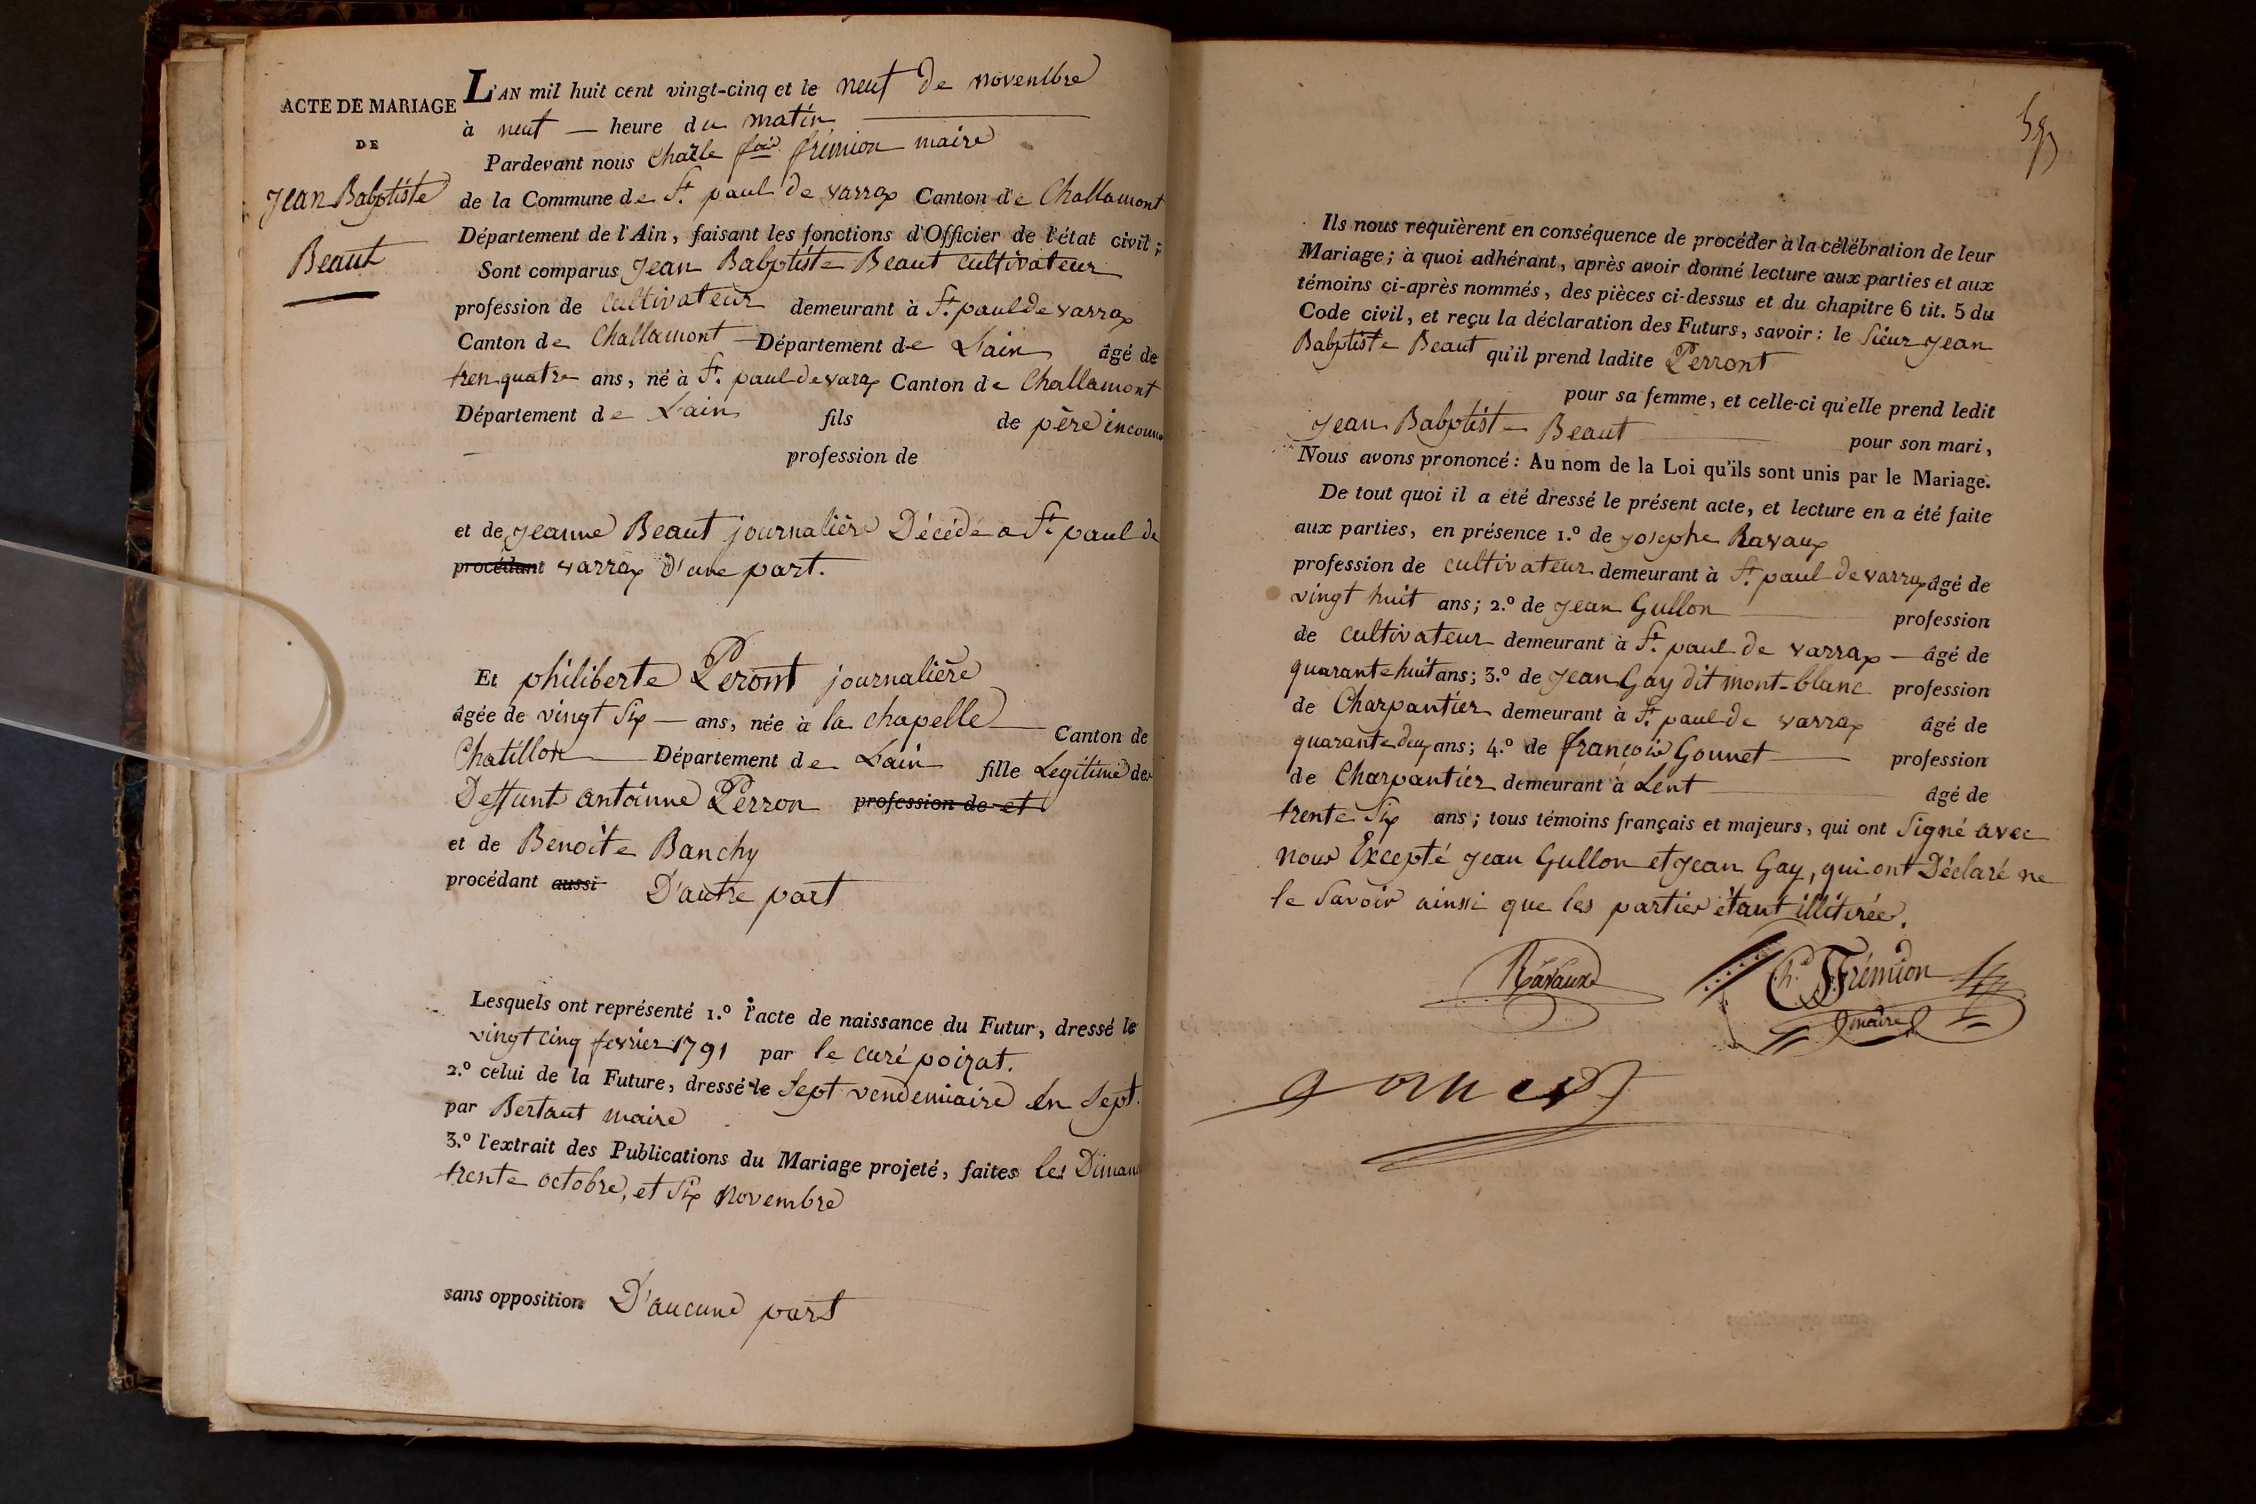 ACTE DE MARIAGE
DE
Jean Babptiste
Beaut
L'AN mil huit cent vingt-cinq et le neuf de novembre
à neuf — heure du matin
Pardevant nous Charle fois frémion maire
de la Commune de St. paul de varrax Canton de Challamont
Département de l'Ain, faisant les fonctions d'Officier de l'état civil;
Sont comparus Jean Babptiste Beaut cultivateur
profession de cultivateur demeurant à St. paul de varrax
Canton de Challamont Département de L'ain âgé de
tren quatre ans, né à St. paul de varax Canton de Challamont
Département de L'ain fils de père inconnu
profession de
et de Jeanne Beaut journalière Décédé a St paul de
procédant varrax d'une part.
Et philiberte Peront journalière
âgée de vingt Six — ans, née à la chapelle Canton de
Chatillon Département de L'ain fille Legitime de
Deffunt antoinne Perron profession de et
et de Benoite Banchy
procédant aussi D'autre part
Lesquels ont représenté 1.º l'acte de naissance du Futur, dressé le
vingt cinq fevrier 1791 par le curé poizat.
2.º celui de la Future, dressé le Sept vendemiaire En Sept.
par Bertaut maire
3.º l'extrait des Publications du Mariage projeté, faites les Diman
trente octobre, et Six Novembre
sans opposition D'aucune part
Ils nous requièrent en conséquence de procéder à la célébration de leur
Mariage; à quoi adhérant, après avoir donné lecture aux parties et aux
témoins ci-après nommés, des pièces ci-dessus et du chapitre 6 tit. 5 du
Code civil, et reçu la déclaration des Futurs, savoir: le Sieur Jean
Babptiste Beaut qu'il prend ladite Perront
pour sa femme, et celle-ci qu'elle prend ledit
Jean Babptiste Beaut pour son mari,
Nous avons prononcé: Au nom de la Loi qu'ils sont unis par le Mariage.
De tout quoi il a été dressé le présent acte, et lecture en a été faite
aux parties, en présence 1.º de Josephe Ravaux
profession de cultivateur demeurant à St. paul de varrax âgé de
vingt huit ans; 2.º de Jean Gullon profession
de cultivateur demeurant à St. paul de varrax — âgé de
quarante huit ans; 3.º de Jean Gay dit mont-blanc profession
de Charpantier demeurant à St. paul de varrax âgé de
quarante deux ans; 4.º de françois Gounet profession
de Charpantier demeurant à Lent âgé de
trente Six ans; tous témoins français et majeurs, qui ont Signé avec
nous Excepté Jean Gullon et Jean Gay, qui ont Déclaré ne
le Savoir ainsi que les parties étant illitirée.
Ravaux
Ch. Frémion
maire